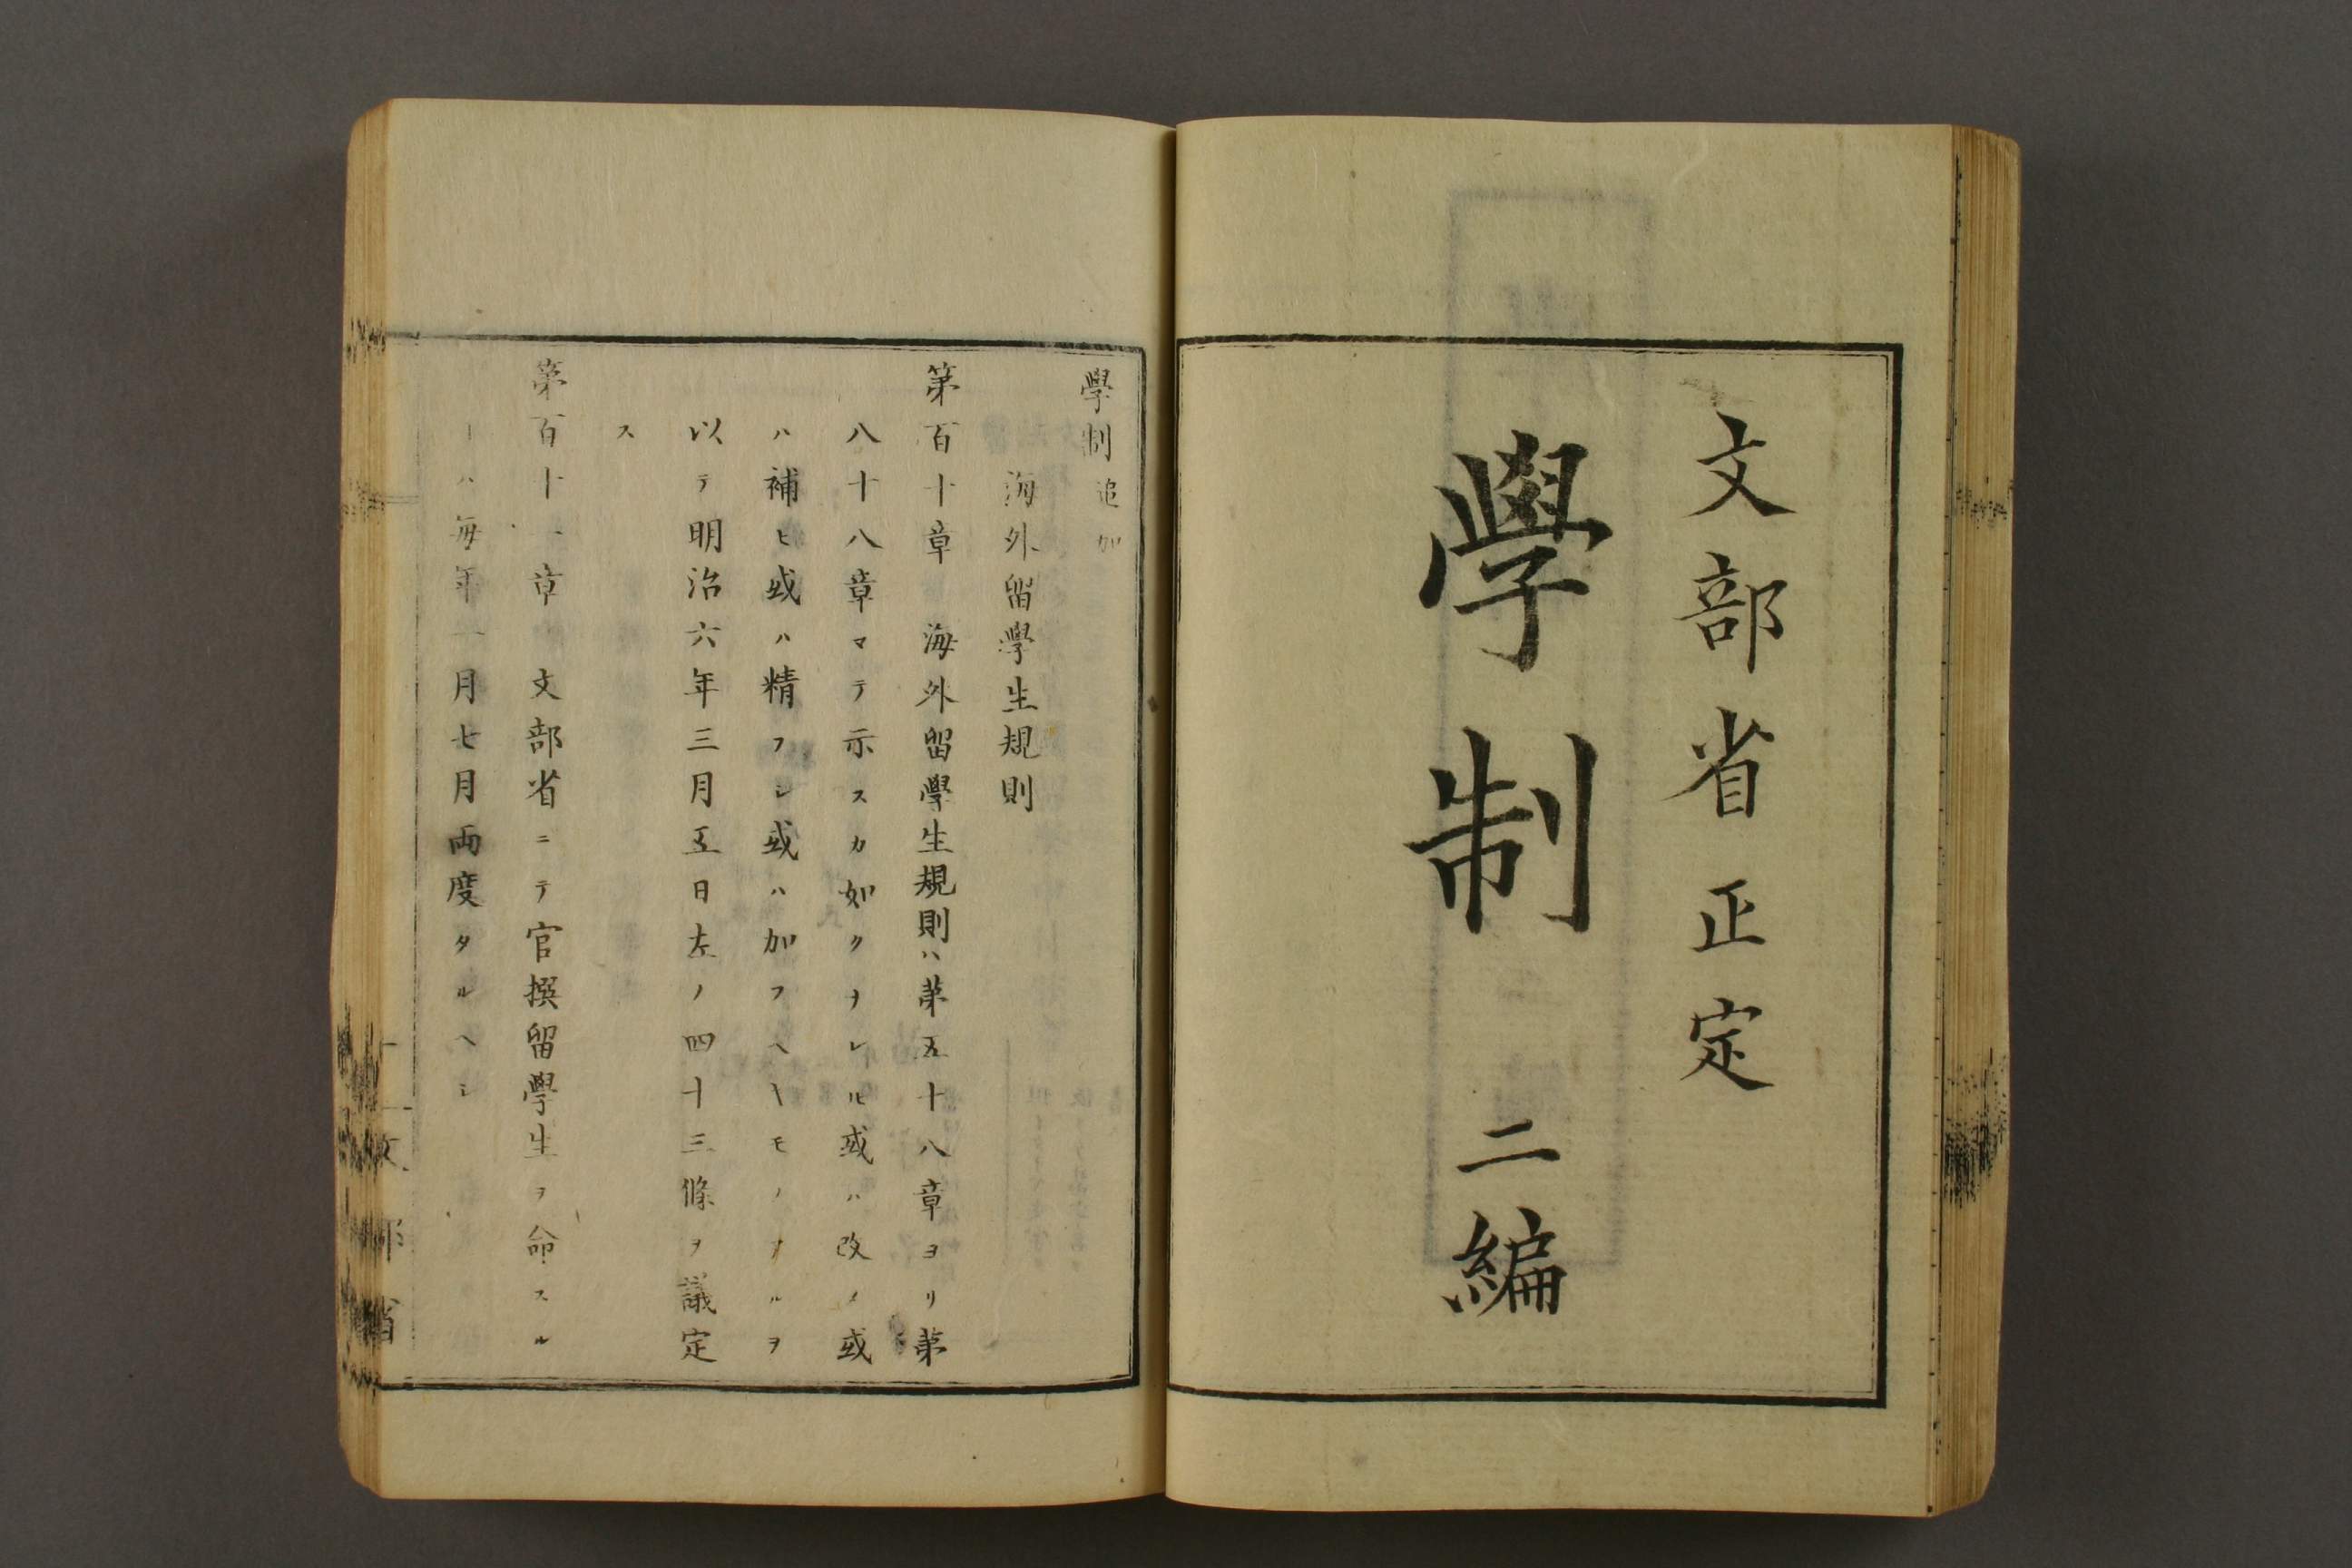 文部省正定
學制 二編
學制追加
海外留學生規則
第百十章 海外留學生規則ハ第五十八章ヨリ第
八十八章マテ示スカ如クナレトル或ハ改メ或
ハ補ヒ或ハ精フシ或ハ加フヘキモノナルヲ
以テ明治六年三月五日左ノ四十三條ヲ議定
ス
第百十一章 文部省ニテ官撰留學生ヲ命スル
ハ毎年一月七月両度タルヘシ
文部省